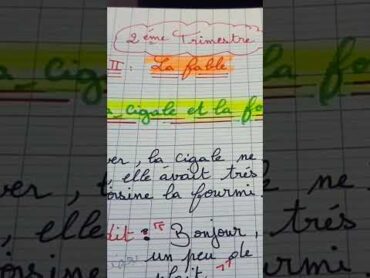 2ème Trimestre
II. La fable
cigale et la fo
ver, la cigale ne
elle avait très
isine la fourmi.
dit : " Bonjour,
un peu de
plaît. "